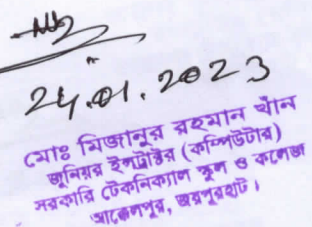 24.01.2023
মোঃ মিজানুর রহমান খাঁন
জুনিয়র ইন্সট্রাক্টর (কম্পিউটার)
সরকারি টেকনিক্যাল স্কুল ও কলেজ
আক্কেলপুর, জয়পুরহাট।